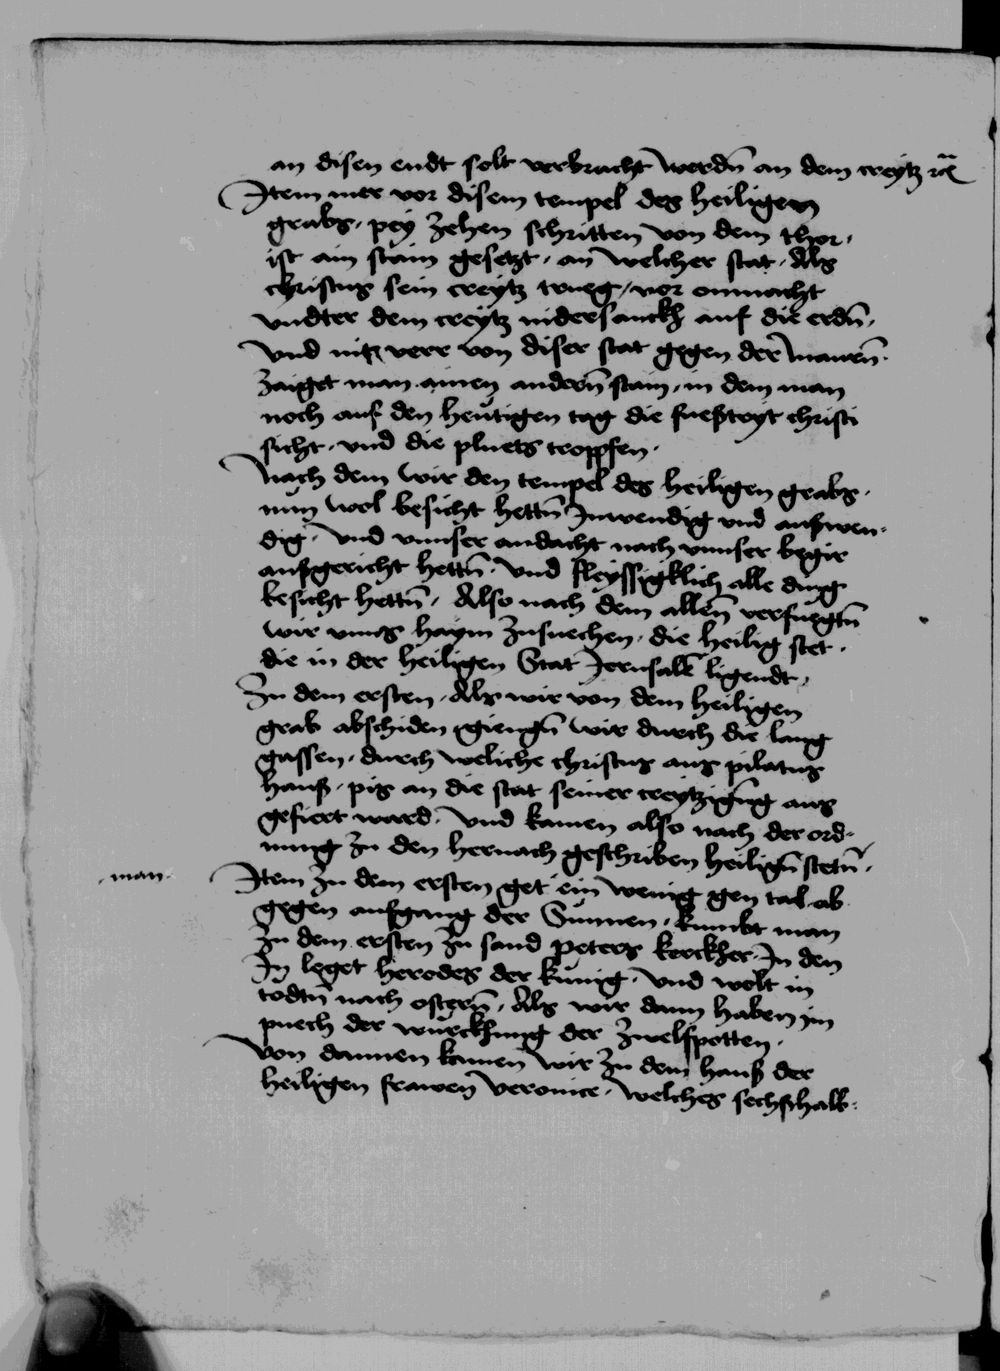 an disen endt solt verbracht werdn̄ an dem creytz rc̄
Item mer vor disem tempel des heiligen
grabs · pey zehen schritten von dem thor ·
ist ain stain gesetzt · an welcher stat · Als
christus sein creytz trueg / vor onmacht
vndter dem creytz nidersanckh auf die erdn̄ ·
Vnd nit verr von diser stat gegen der mauren̄ ·
zaiget man ainen andern̄ stain · in dem man
noch auf den heutigen tag die fueßtryt christi
sicht · vnd die pluets tropffen ·
Nach dem wir den tempel des heiligen grabs ·
nun wol besicht hettn̄ Inwendig vnd außwen⸗
dig · vnd vnnser andacht nach vnnser begir
außgericht hettn̄ · vnd fleyssigklich alle ding
besicht hettn̄ · Also nach dem allen̄ verfuegtn̄
wir vnns haym zusuechen · die heilig stet ·
die in der heiligen Stat Jerusalē ligendt ·
Zu dem ersten · Als wir von dem heiligen
grab abschiden giengn̄ wir durch die lang
gassen · durch weliche christus aus pilatus
hauß · pis an die stat seiner creytzigūng aus
gefiert ward · Vnd kamen also nach der ord⸗
nung zu den hernach geschriben heilign̄ stetn̄ ·
· man · Item zu dem ersten get ein wenig gen tal ab
gegen aufgang der Sunnen · kumbt man
zu dem ersten zu sand peters kerckher · In den
In leget herodes der kunig · vnd wolt in
todtn̄ nach ostern̄ · Als wir dann haben im
puech der wurckhung der zwelfpotten ·
Von dannen kamen wir zu dem hauß der
heiligen frawen veronice · welches sechsthalb ·